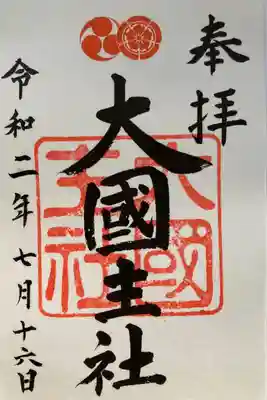 奉拝
大國主社
大國主社
令和二年七月十六日